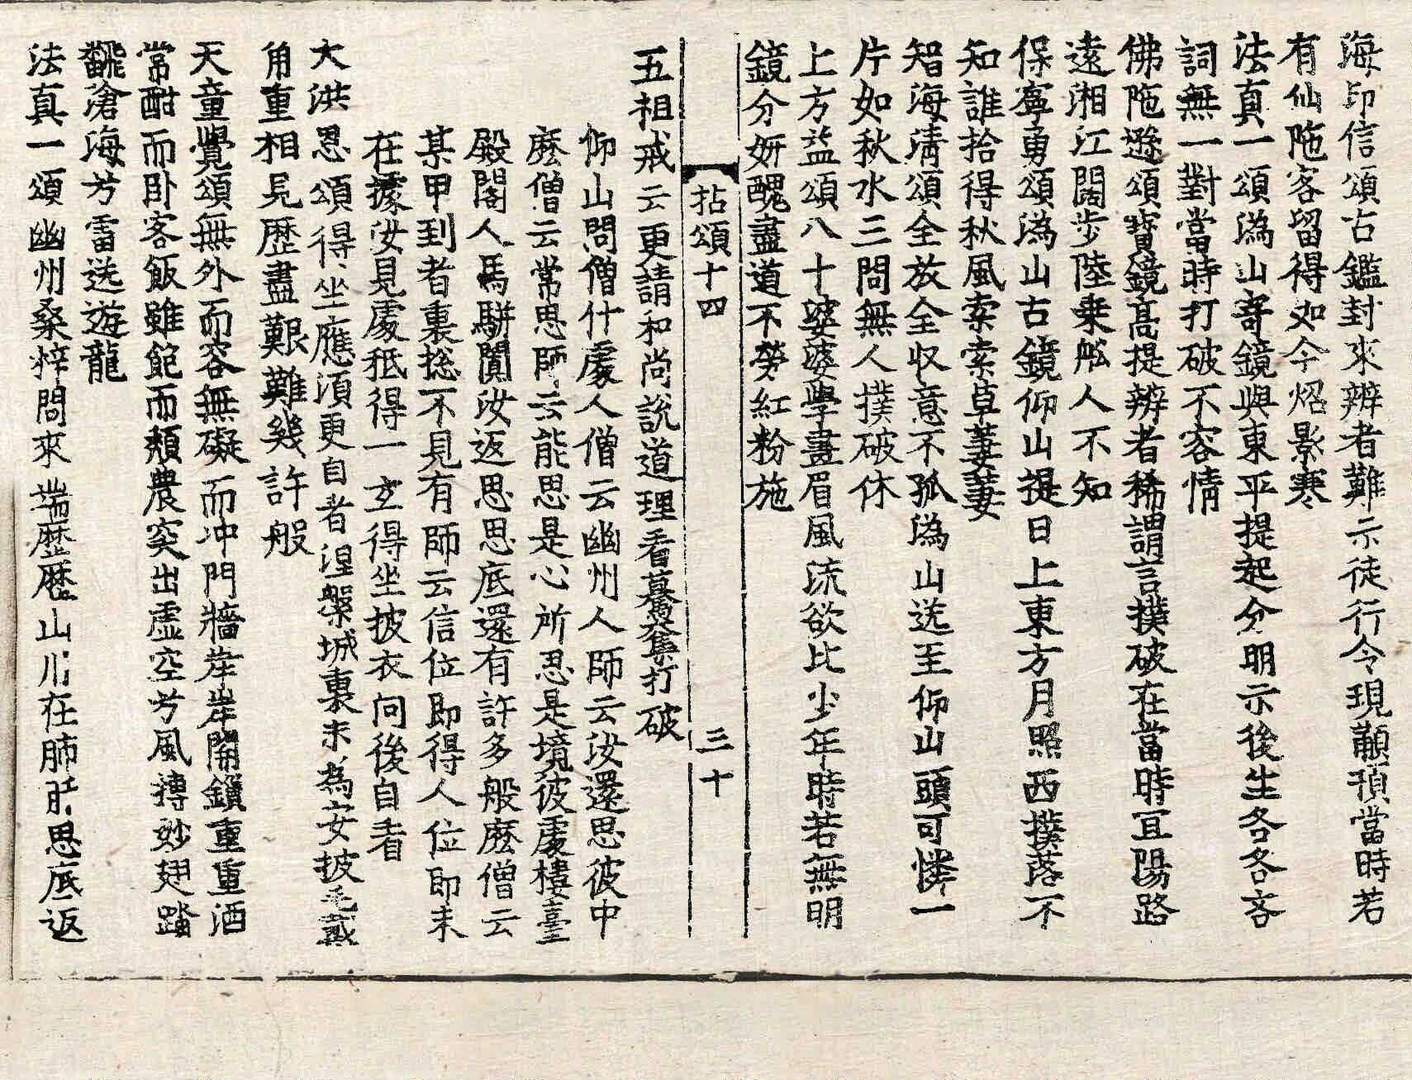 海印信頌古鑑封來辨者難示徒行令現顢頇當時若
有仙陁客留得如今炤影寒
法真一頌溈山寄鏡與東平提起分明示後生各各言
詞無一對當時打破不容情
佛陁遜頌寶鏡高提辨者稀謂言撲破在當時互陽路
遠湘江闊步陸乗舩人不知
保寧勇頌溈山古鏡仰山提日上東方月照西撲落不
知誰拾得秋風索索草萋萋
智海清頌全放全収意不孤溈山送至仰山頭可憐一
片如秋水三問無人撲破休
上方益頌八十婆婆學畫眉風流欲比少年時若無明
鏡分妍醜盡道不勞紅粉施
拈頌十四 三十
五祖戒云更請和尚說道理看驀集打破
仰山問僧什處人僧云幽州人師云汝還思彼中
麽僧云常思師云能思是心所思是境彼處樓臺
殿閣人馬駢闐汝返思思底還有許多般麽僧云
某甲到者裏揔不見有師云信位即得人位即未
在據汝見處秪得一玄得坐披衣向後自看
大洪恩頌得坐應湏更自看涅槃城裏未爲安披毛戴
角重相見歴盡艱難幾許般
天童覺頌無外而容無礙而冲門牆岸岸開鎖重重酒
常酣而卧客飯雖飽而頹農突出虛空兮風摶妙翅踏
飜滄海兮雷送遊龍
法真一頌幽州桑梓問來端歴歴山川在肺肝思底返